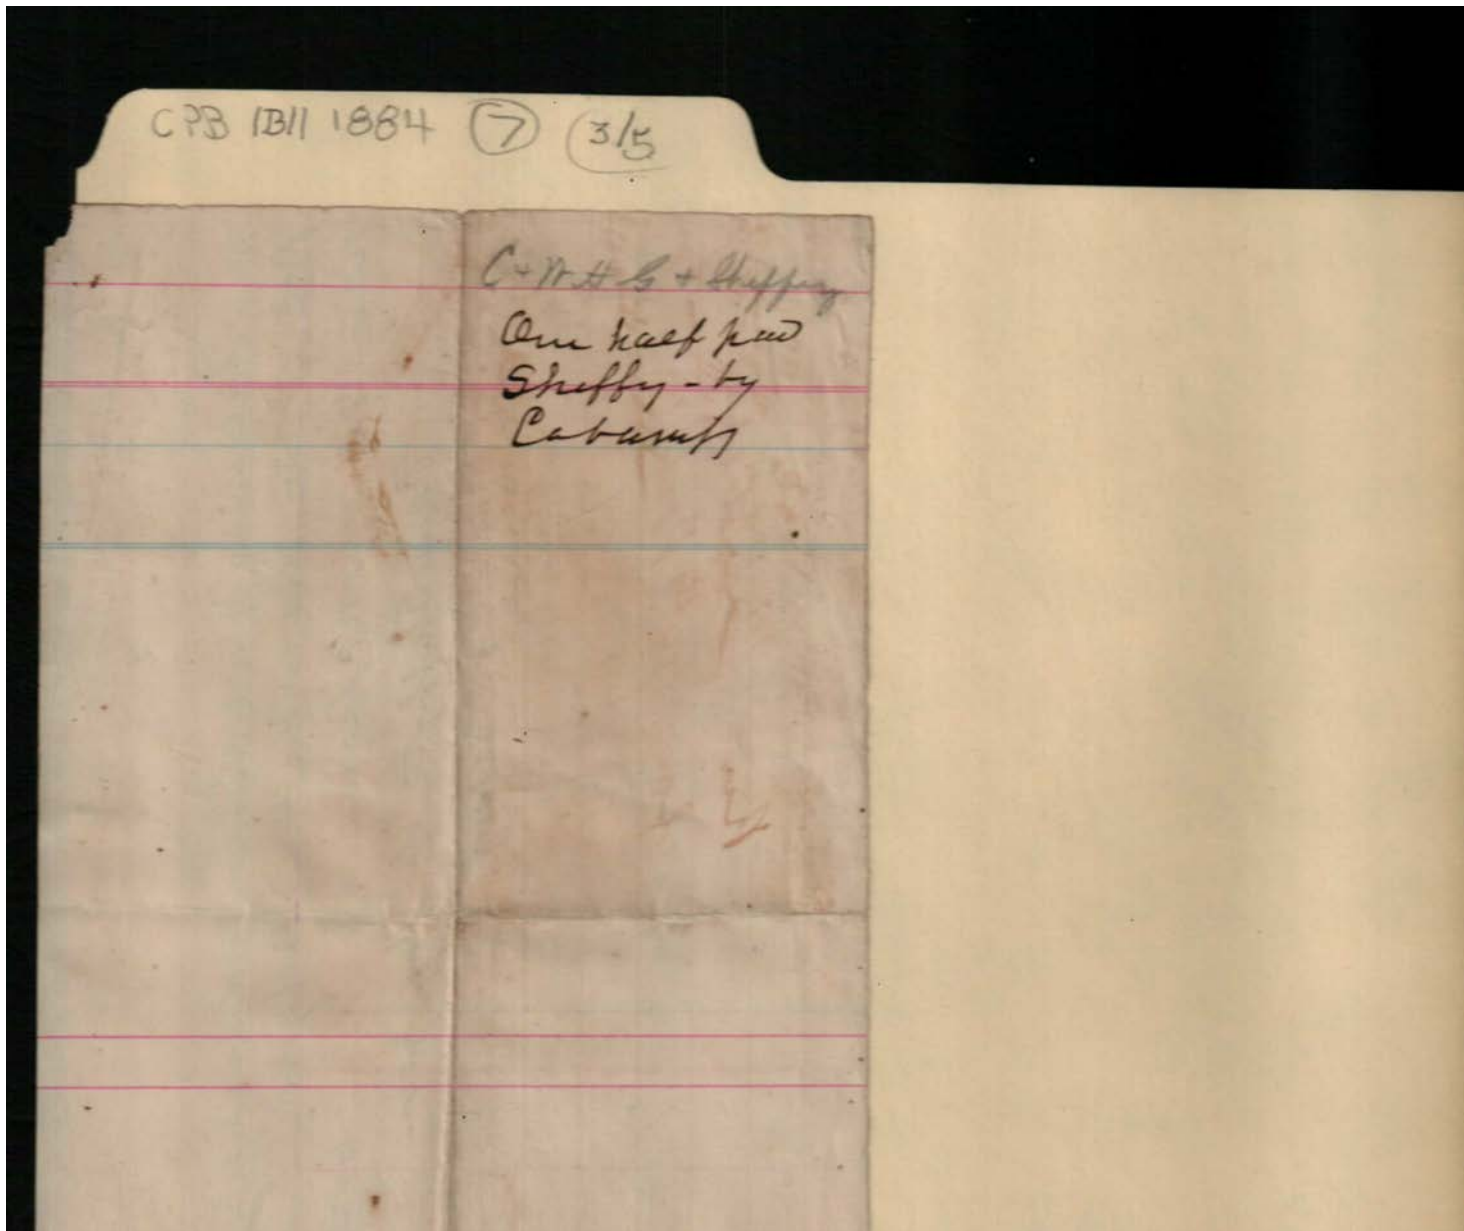 CPB IB11 1884 7 3/5
C + W H G + Sheffey
One half paid
Sheffey - by